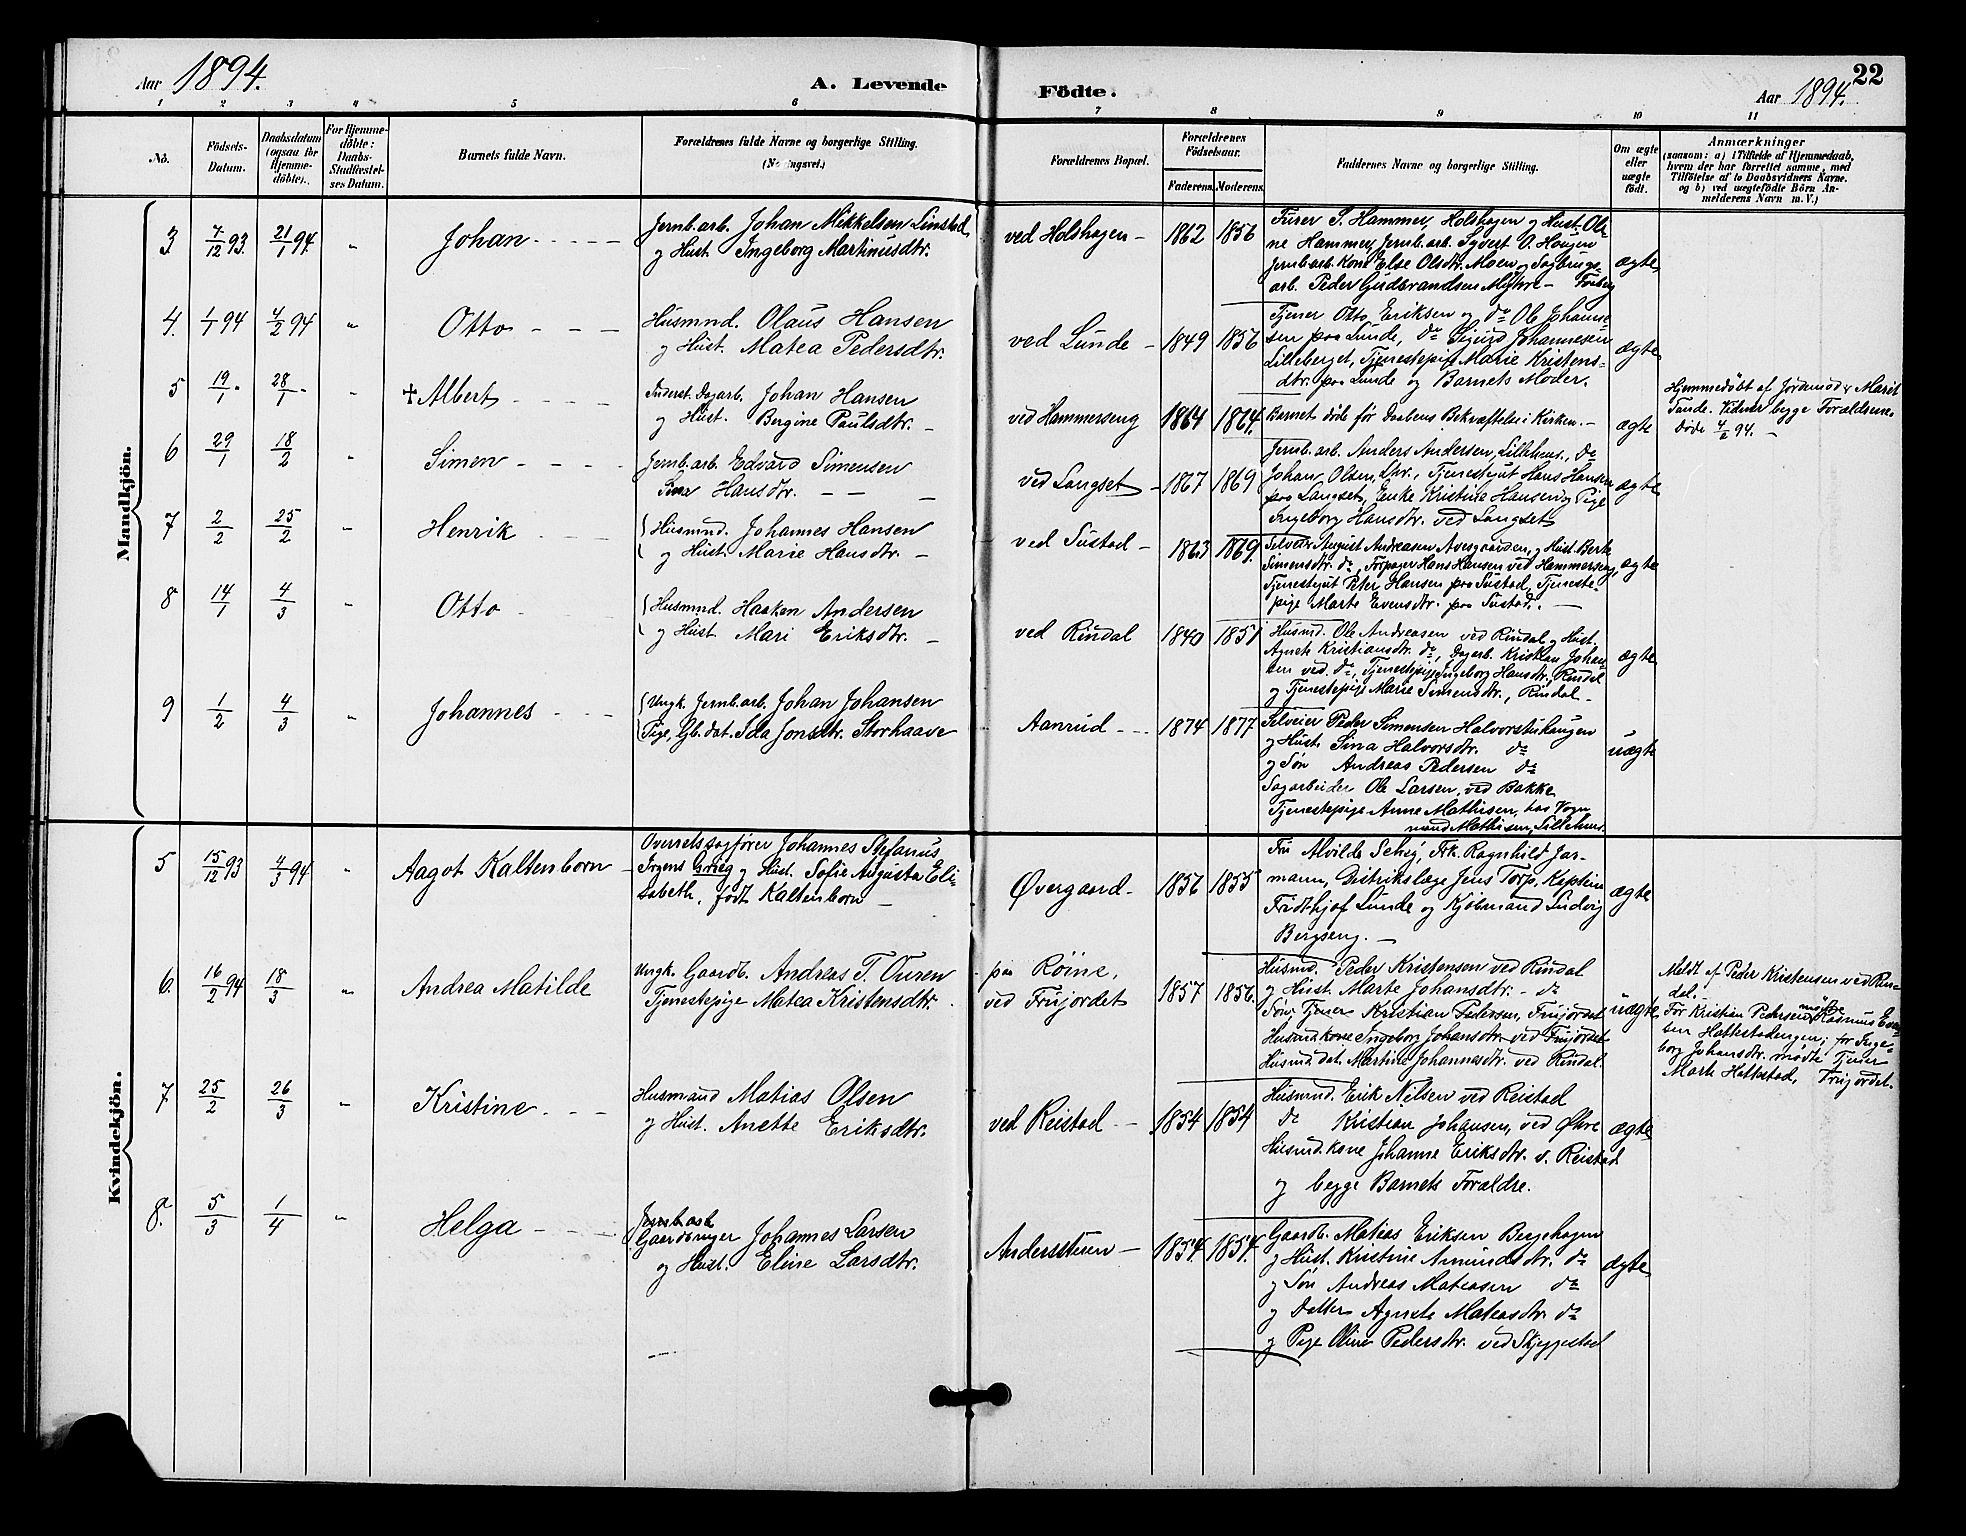 Aar 1894.
A. Levende Födte.
Aar 1894.
22
1 2 3 4 5 6 7 8 9 10 11
No.
Födsels-
Datum.
Daabsdatum
(ogsaa for
Hjemme-
döbte).
For Hjemme-
döbte:
Daabs-
Stadfæstel-
ses Datum.
Barnets fulde Navn.
Forældrenes fulde Navne og borgerlige Stilling.
Forældrenes Bopæl.
Forældrenes
Födselsaar.
Faderens. Moderens.
Faddernes Navne og borgerlige Stilling.
Om ægte
eller
uægte
födt.
Anmærkninger
(saasom: a) i Tilfælde af Hjemmedaab,
hvem der har forrettet samme, med
Tilföielse af to Daabsvidners Navne.
og b) ved uægtefödte Börn An-
melderens Navn m. V.)
Mandkjön.
3 7/12 93. 21/1 94 " Johan
Jernb.arb. Johan Mikkelsen Linstad
og Hust. Ingeborg Martinusdtr.
ved Holshagen – 1862 1856
S. Hammer, Holshagen og Hust. Oli-
ne Hammer, Jernb.arb. Syvert O. Haugen
Jernb.arb. Kone Else Olsdtr. Moen og Sagbrugs-
arb. Peder Gudbrandsen Myhre – Faaberg
ægte
4. 1/1 94 4/2 94 " Otto
Husmnd. Olaus Hansen
og Hust. Matea Pedersdtr.
ved Lunde – 1849 1856
Tjener Otto Eriksen og do Ole Johanne-
sen paa Lunde, do Sigurd Johannesen
Lilleberget, Tjenestepige Marie Kristens-
dtr. paa Lunde og Barnets Moder.
ægte
5 19/1 " 28/1 " ✝ Albert
Inderst. Dagarb. Johan Hansen
og Hust. Bergine Paulsdtr. –
ved Hammerseng 1864 1864.
Barnet døde før Daabens Bekræftelse i Kirken. –
ægte
Hjemmedöbt af Jordmod. Marit
Tande. Vidner begge Forældrene.
Døde 4/2 94. –
6 29/1 18/2 " Simen
Jernb.arb. Edvard Simensen
Hansdtr. – – –
ved Langset – 1867 1869
Jernb.arb. Anders Andersen, Lilleham., do
Johan Olsen, Tjenestegut Hans Hansen
paa Langset, Enke Kristine Hansen og Pige
Ingeborg Hansdtr. ved Langset
ægte
7 2/2 25/2 " Henrik
Husmnd. Johannes Hansen
og Hust. Marie Hansdtr. –
ved Sustad – 1863 1869.
Selveier August Andreasen Avesgaarden, og Hust. Berte
Simensdtr. do, Forpagter Hans Hansen ved Hammerseng,
Tjenestegut Peter Hansen paa Sustad, Tjeneste-
pige Marte Evensdtr. paa Sustad. –
ægte
8 14/1 4/3 " Otto
Husmnd. Haaken Andersen
og Hust. Mari Eriksdtr. –
ved Rindal 1840 1851
Husmd. Ole Andreasen ved Rindal og Hust.
Agnete Kristiansdtr. do, Dagarb. Kristian Johan-
sen ved do, Tjenestepige Ingeborg Hansdtr, Rindal
og Tjenestepige Marie Simensdtr., Rindal –
ægte
9 1/2 4/3 " Johannes
Ungk. Jernb.arb. Johan Johansen
Pige, Gb.dat. Ida Jonsdtr. Storhaave
Aanrud – 1874 1877
Selveier Peder Simensen Halvorsstuhaugen
og Hust. Sina Halvorsdtr. do
og Søn Andreas Pedersen do
Sagarbeider Ole Larsen, ved Bakke
Tjenestepige Anne Mathisen, hos Vogn-
mand Mathisen, Lilleham.
uægte
Kvindekjön.
5 15/12 93 4/3 94 " Aagot Kaltenborn
Overretssagfører Johannes Stefanus
Irgens Grieg og Hust. Sofie Augusta Eli-
sabeth, født Kaltenborn –
Øvergaard – 1856 1855
Fru Alvilde Schej, Frk. Ragnhild Jar-
mann, Distriktslæge Jens Torp, Kaptein
Fridthjof Lunde og Kjøbmand Ludvig
Bergseng. –
ægte
6. 16/2 94 18/3 " Andrea Matilde
Ungk. Gaardb. Andreas T. Ouren
Tjenestepige Matea Kristensdtr.
paa Røine,
ved Frujordet 1857 1856.
Husmd. Peder Kristensen ved Rindal
og Hust. Marte Johansdtr. – do
Søn, Tjener Kristian Pedersen, Frujordet
Husmdkone Ingeborg Johansdtr. ved Frujordet
Husmd.dat. Martine Johannesdtr. ved Rindal.
uægte
Meldt af Peder Kristensen ved Rin-
dal. –
For Kristian Pedersen mødte Rasmus Even-
sen Hattestadengen; for Inge-
borg Johansdtr. mødte Tjener
Marte Hattestad, Frujordet.
7 25/2 26/3 " Kristine
Husmand Matias Olsen
og Hust. Anette Eriksdtr.
ved Reistad – 1854 1854
Husmnd. Erik Nilsen ved Reistad
do Kristian Johansen, ved Øhre
Husmd.kone Johanne Eriksdtr. v. Reistad
og begge Barnets Forældre.
ægte
8. 5/3 1/4 " Helga
Jernb.arb
Gaardbruger Johannes Larsen
og Hust. Eline Larsdtr.
Andersstuen – 1854. 1854.
Gaardb. Matias Eriksen Berghagen
og Hust. Kristine Amundsdtr. do
og Søn Andreas Matiasen do
og Datter Agnete Matiasdtr. do
og Pige Oline Pedersdtr. ved Skjeggestad
ægte